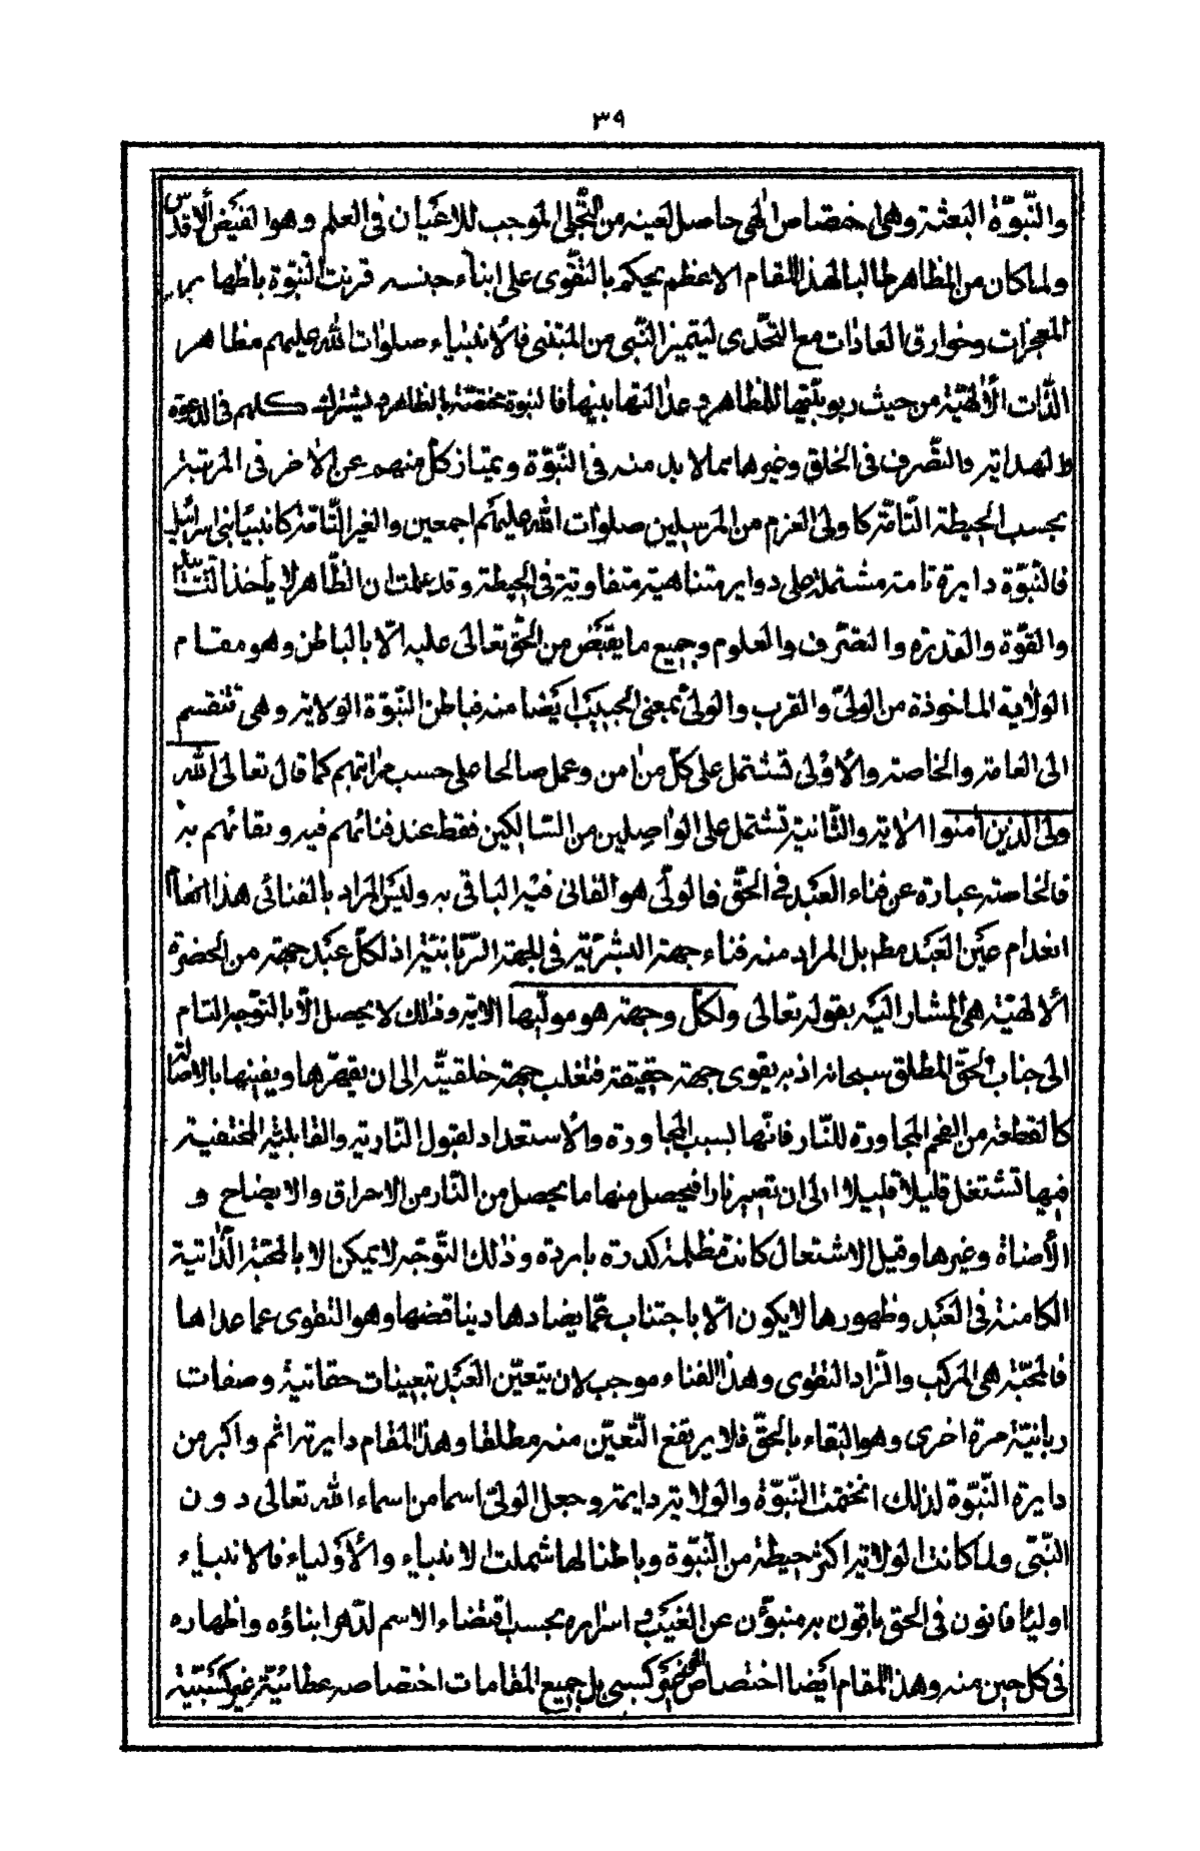 ٣٩
والنّبوّة البعثة وهى اختصاص الٰهى حاصل لعينه من التجّلى الموجب للاعيان فى العلم وهو الفيض الاقدس
ولما كان من المظاهر طالبا لهذا المقام الاعظم بحكم بالتفوّق على ابناء جنسه قرنت النبوّة باظهار
المعجزات وخوارق العادات مع التحّدى ليتميز النّبى من المتنبى فالأنبياء صلوات الله عليهم مظاهر
الذّات الألٰهيّة من حيث ربوبيّتها للمظاهر وعدالتها بينها فالنبوة مختصّة بالظاهر ويشترك كلهم فى الدعوة
والهداية والتصّرف فى الخلق وغيرها مما لا بد منه فى النّبوّة ويمتاز كلّ منهم عن الاٰخر فى المرتبة
بحسب الحيطة التّامّة كاولى العزم من المرسلين صلوات الله عليهم اجمعين والغير التّامّة كانبياء بنى اسرائيل
فالنّبوّة دايرة تامة مشتملة على دواير متناهية متفاوتة فى الحيطة وقد علمت ان الظّاهر لا ياخذ التائيد
والقوّة والقدرة والتصّرف والعلوم وجميع ما يفيض من الحقّ تعالى عليه الّا بالباطن وهو مقام
الولاية الماخوذة من الولىّ والقرب والولىّ بمعنى الحبيب ايضا منه فباطن النّبوّة الولاية وهى تنقسم
الى العامة والخاصة والأولى تشتمل على كلّ من اٰمن وعمل صالحا على حسب مراتبهم كما قال تعالى الله
ولى الذين اٰمنوا الاية والثّانية تشتمل على الواصلين من السّالكين فقط عند فنائهم فيه وبقائهم به
فالخاصة عبارة عن فناء العبد فى الحقّ فالولىّ هو الفانى فيه الباقى به وليس المراد بالفنائى هذا
انعدام عين العبد مطم بل المراد منه فناء جهة البشريّة فى الجهة الرّبّانيّة اذ لكلّ عبد جهة من الحضرة
الألٰهيّة هى المشار اليه بقوله تعالى ولكلّ وجهة هو مولّيها الاية وذلك لا يحصل الّا بالتوّجه التام
الى جناب الحّق المطلق سبحانه اذ به يقوى جهة حقيقته فتغلب جهة خلقيّته الى ان يقهرها ويفنيها بالاصالة
كالقطعة من الفحم المجاورة للنّار فانّها بسبب المجاورة والأستعداد لقبول النّارية والقابليّة المختفية
فيها تشتعل قليلا قليلا الى ان تصير نارا فيحصل منها ما يحصل من النّار من الاحراق والايضاح و
الأضائة وغيرها وقبل الاشتعال كانت مظلمة كدرة باردة وذلك التّوّجه لا يمكن الا بالمحبّة الذّاتية
الكامنة فى العبد وظهورها لا يكون الّا باجتناب عمّا يضادها ويناقضها وهو التقوى عما عداها
فالمحبّة هى المركب والزّاد التقوى وهذا الفناء موجب لان يتعيّن العبد بتعينات حقانية وصفات
ربانيّة مرة اخرى وهو البقاء بالحقّ فلا يرتفع التّعيّن منه مطلقا وهذا المقام دايرته اتم واكبر من
دايرة النّبوّة لذلك انختمت النّبوّة والولاية دايمة وجعل الولىّ اسما من اسماء الله تعالى دون
النّبىّ ولما كانت الولاية اكثر حيطة من النّبوّة وباطنا لها شملت الانبياء والأولياء فالانبياء
اوليا فانون فى الحق باقون به منبؤن عن الغيب واسراره بحسب اقتضاء الاسم لدهر ابناؤه واظهاره
فى كل حين منه وهذا المقام ايضا اختصاص الٰهى غير كسبى بل جميع المقامات اختصاصه عطائيّة غير كسبيّة